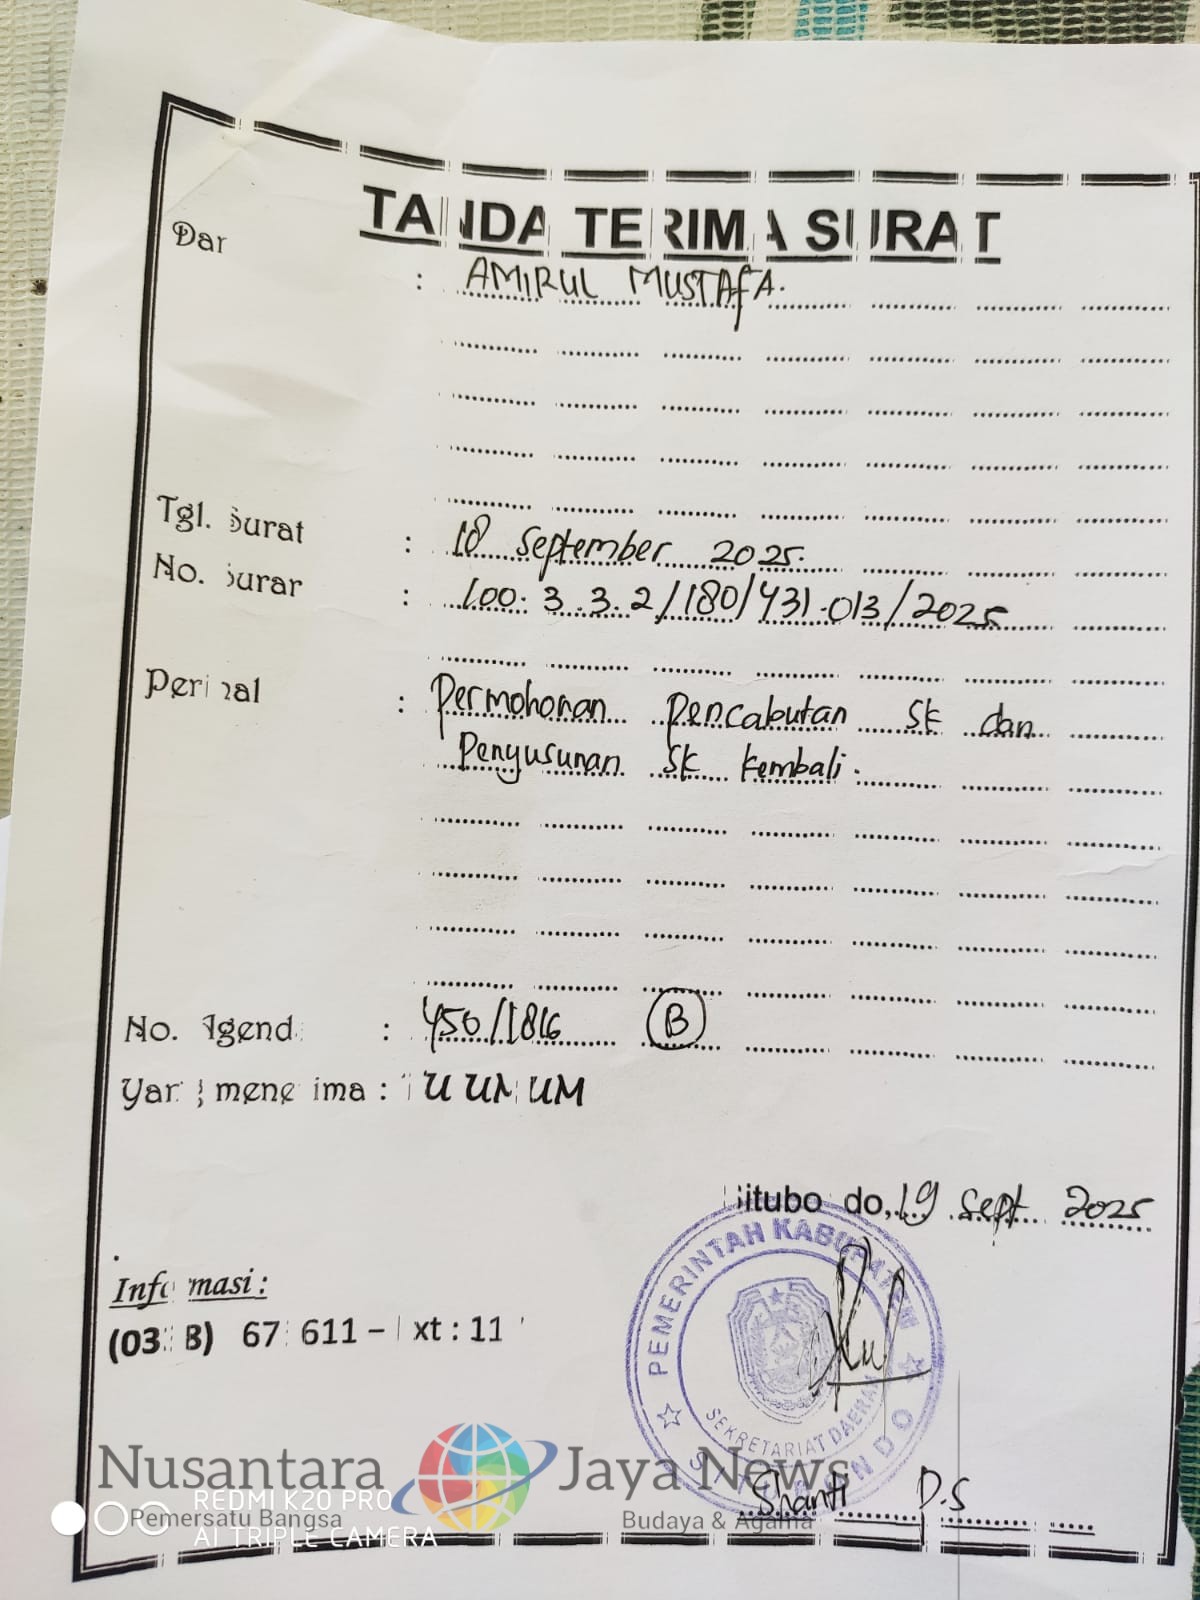 TANDA TERIMA SURAT
Dar : AMIRUL MUSTAFA.
Tgl. Surat : 18 September 2025.
No. Surar : 100.3.3.2/180/431.013/2025
Perihal : Permohonan Pencabutan SK dan
Penyusunan SK kembali.
No. Agend : 450/1816 B
Yang menerima : TU UMUM
Situbondo, 19 Sept 2025
Informasi :
(03 8) 67 611 – xt : 11
PEMERINTAH KABUPATEN
SEKRETARIAT DAERAH
SITUBONDO
Shanti D.S
Nusantara Jaya News
Pemersatu Bangsa Budaya & Agama
REDMI K20 PRO
AI TRIPLE CAMERA